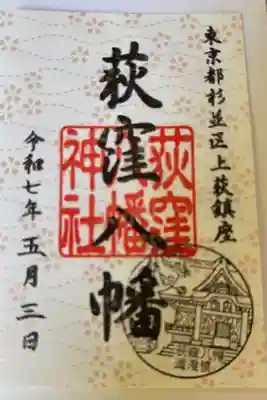 東京都杉並区上荻鎮座
荻窪八幡
荻窪
八幡
神社
令和七年五月三日